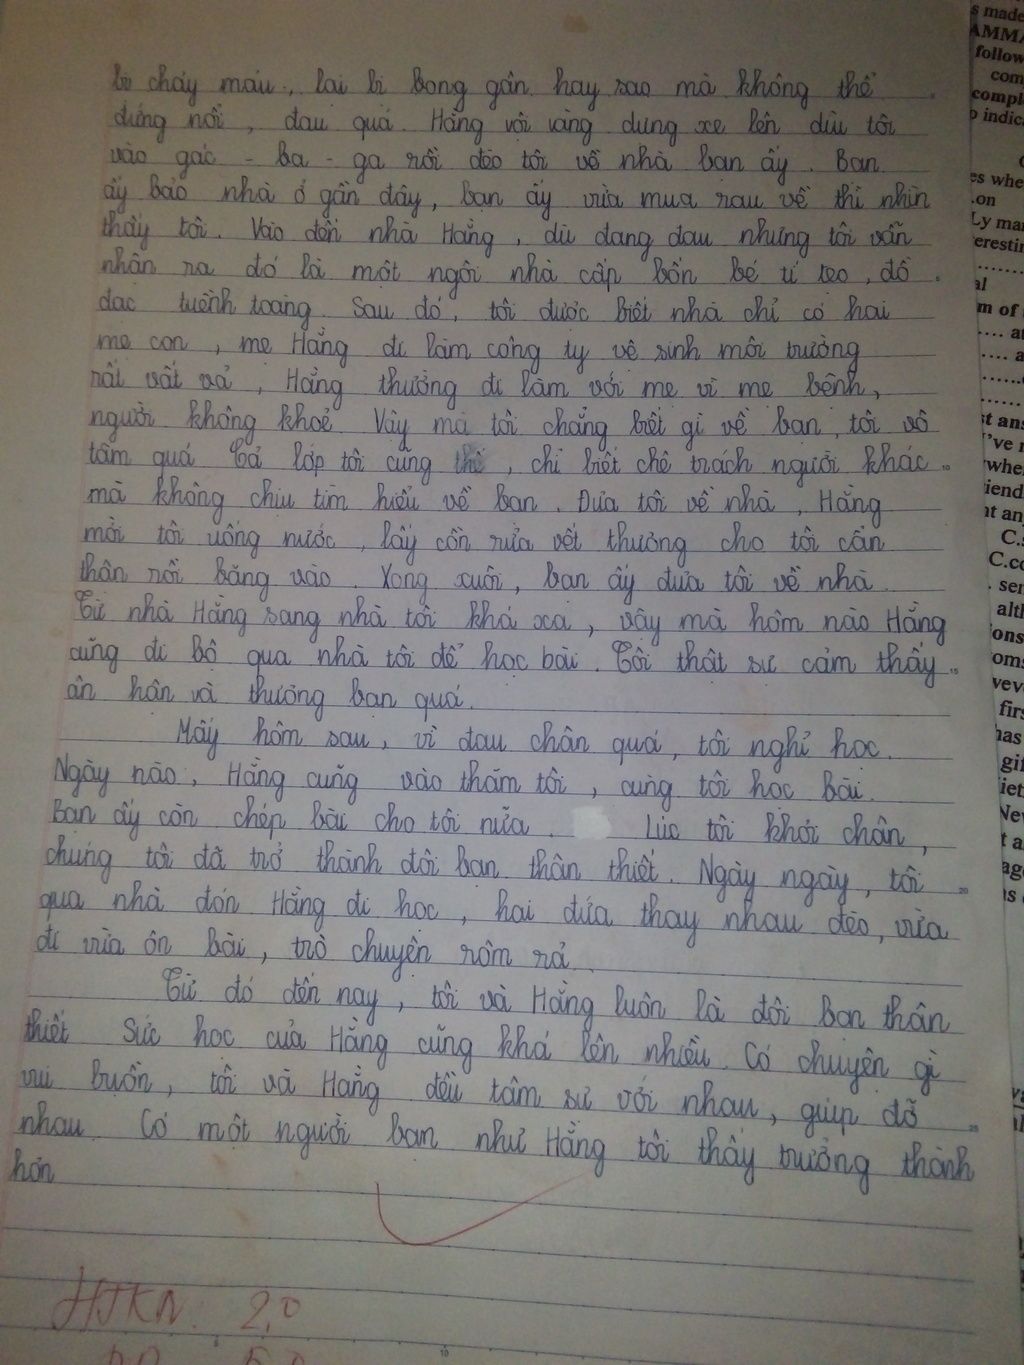 bị chảy máu, lại bị bong gân hay sao mà không thể
đứng nổi, đau quá. Hằng vội vàng dựng xe lên dìu tôi
vào gác - ba - ga rồi đèo tôi về nhà bạn ấy. Bạn
ấy bảo nhà ở gần đây, bạn ấy vừa mua rau về thì nhìn
thấy tôi. Vào đến nhà Hằng, dù đang đau nhưng tôi vẫn
nhận ra đó là một ngôi nhà cấp bốn bé tí teo, đồ
đạc tuềnh toàng. Sau đó, tôi được biết nhà chỉ có hai
mẹ con, mẹ Hằng đi làm công ty vệ sinh môi trường
rất vất vả, Hằng thường đi làm với mẹ vì mẹ bệnh,
người không khoẻ. Vậy mà tôi chẳng biết gì về bạn, tôi vô
tâm quá. Cả lớp tôi cũng thế, chỉ biết chê trách người khác
mà không chịu tìm hiểu về bạn. Đưa tôi về nhà, Hằng
mời tôi uống nước, lấy cồn rửa vết thương cho tôi cẩn
thận rồi băng vào. Xong xuôi, bạn ấy đưa tôi về nhà.
Từ nhà Hằng sang nhà tôi khá xa, vậy mà hôm nào Hằng
cũng đi bộ qua nhà tôi để học bài. Tôi thật sự cảm thấy
ân hận và thương bạn quá.
Mấy hôm sau, vì đau chân quá, tôi nghỉ học.
Ngày nào, Hằng cũng vào thăm tôi, cùng tôi học bài.
Bạn ấy còn chép bài cho tôi nữa. Lúc tôi khỏi chân,
chúng tôi đã trở thành đôi bạn thân thiết. Ngày ngày, tôi
qua nhà đón Hằng đi học, hai đứa thay nhau đèo, vừa
đi vừa ôn bài, trò chuyện rôm rả.
Từ đó đến nay, tôi và Hằng luôn là đôi bạn thân
thiết. Sức học của Hằng cũng khá lên nhiều. Có chuyện gì
vui buồn, tôi và Hằng đều tâm sự với nhau, giúp đỡ
nhau. Có một người bạn như Hằng tôi thấy trưởng thành
hơn
HTKN. 2,0